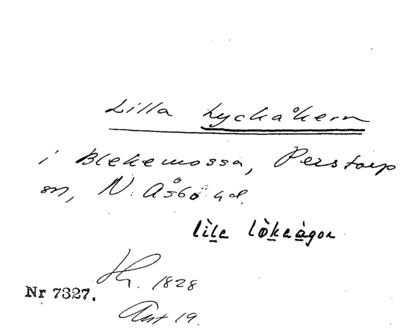 Lilla Lyckåkern
i Blekemossa, Perstorp
sn, N. Åsbo hd.
lìle lòkeàgor
Nr 7327.
1828
Ant 19.